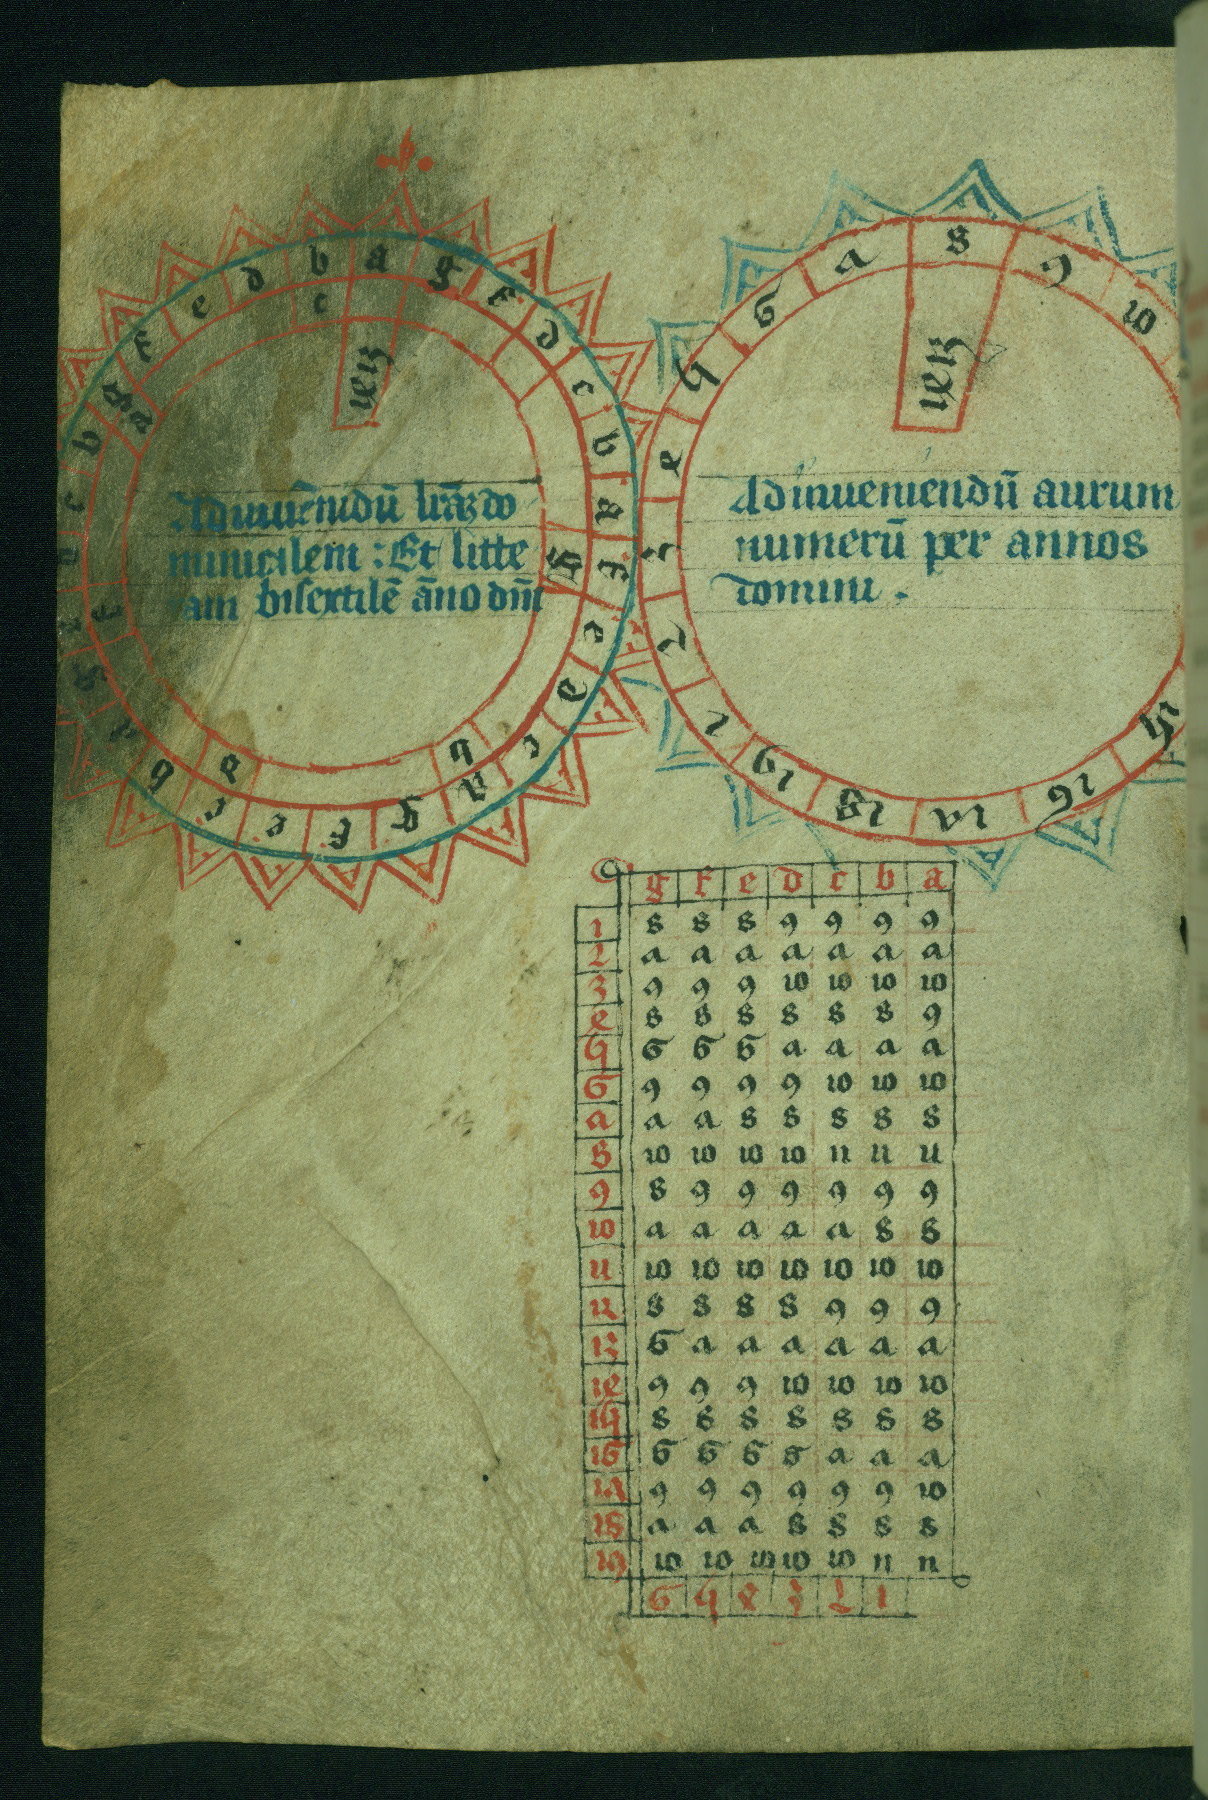 .b.
b a g f d c b a
f e d
c
Ad inueniēdū lr̄aʒ do
minicalem : Et litte
ram bisextilē āno dn̄i
6 ʌ 8 9 10
Ad inueniendū aurum
numerū per annos
domini .
g f e d c b a
1 8 8 8 9 9 9 9
2 ʌ ʌ ʌ ʌ ʌ ʌ ʌ
3 9 9 9 10 10 10 10
4 8 8 8 8 8 8 9
5 6 6 6 ʌ ʌ ʌ ʌ
6 9 9 9 9 10 10 10
ʌ ʌ ʌ 8 8 8 8 8
8 10 10 10 10 11 11 11
9 8 9 9 9 9 9 9
10 ʌ ʌ ʌ ʌ ʌ 8 8
11 10 10 10 10 10 10 10
12 8 8 8 8 9 9 9
13 6 ʌ ʌ ʌ ʌ ʌ ʌ
14 9 9 9 10 10 10 10
15 8 8 8 8 8 8 8
16 6 6 6 6 ʌ ʌ ʌ
1ʌ 9 9 9 9 9 9 10
18 ʌ ʌ ʌ 8 8 8 8
19 10 10 10 10 10 11 11
6 5 4 3 2 1